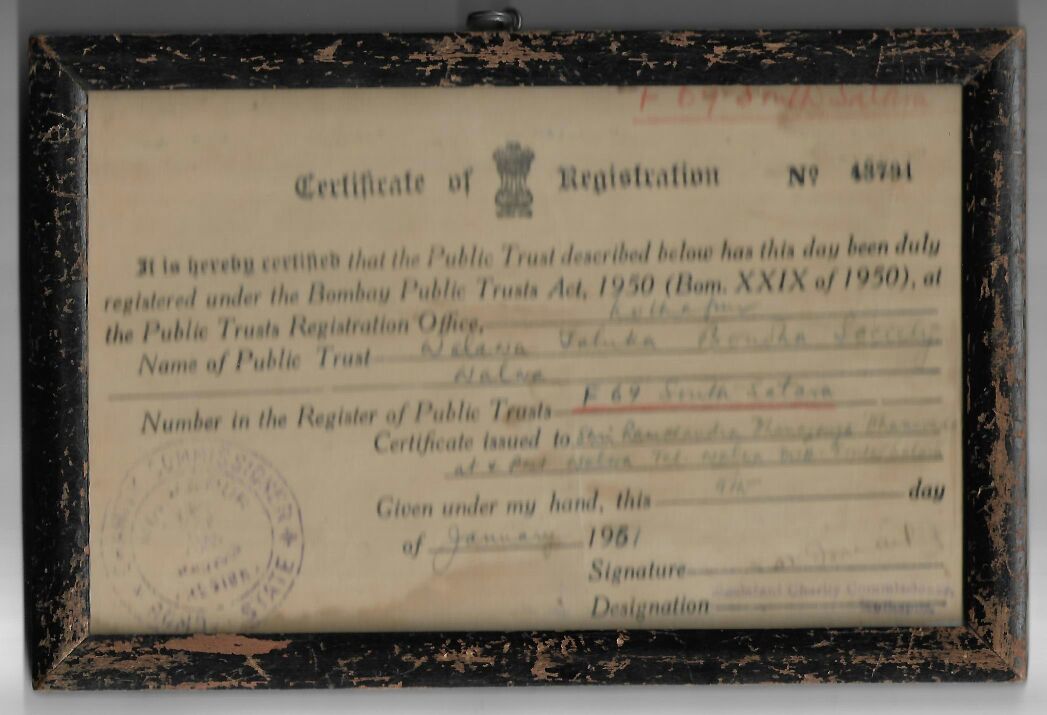 F 69 South Satara
Certificate of Registration Nº 43791
It is hereby certified that the Public Trust described below has this day been duly
registered under the Bombay Public Trusts Act, 1950 (Bom. XXIX of 1950), at
the Public Trusts Registration Office, Kolhapur
Name of Public Trust Walawa Taluka Boudha Society
Walwa
Number in the Register of Public Trusts F 69 South Satara
Certificate issued to Shri Ramchandra
at & Post Walwa Tal. Walwa Dist.
Given under my hand, this 9th day
of January 1961
Signature
Designation Assistant Charity Commissioner,
Kolhapur
COMMISSIONER
STATE
REGION